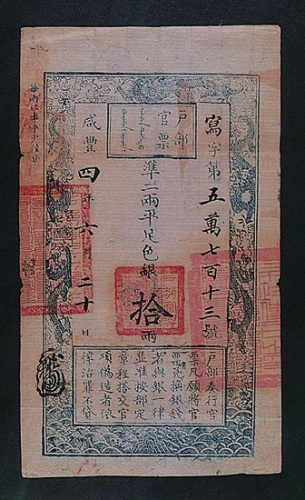 戶部
官票
寫字第五萬七百十三號
準二兩平足色銀拾兩
咸豐四年六月二十日
戶部奏行官
票凡願將官
票兌換銀錢
者與銀一律
並准按部定
章程搭交官
項偽造者依
律治罪不貸